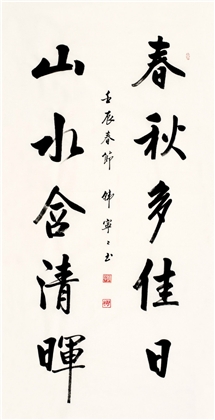 春秋多佳日
山水含清暉
壬辰春節 偉寧〻書